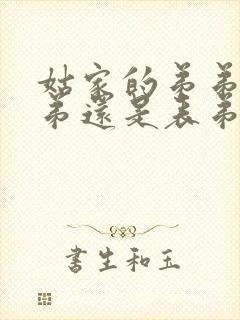 姑家的弟弟
弟還是表弟
書生和玉